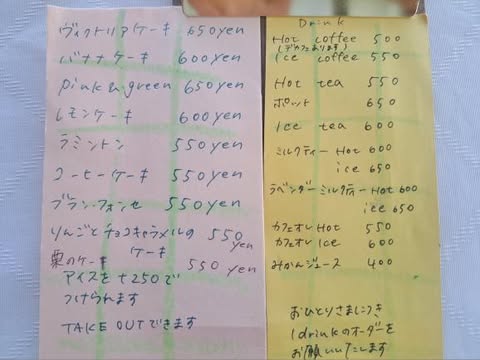 ヴィクトリアケーキ 650yen
バナナケーキ 600yen
pink & green 650yen
レモンケーキ 600yen
ラミントン 550yen
コーヒーケーキ 550yen
ブランフォンセ 550yen
りんごとチョコキャラメルの 550
ケーキ yen
栗のケーキ 550 yen
アイスを+250で
つけられます
TAKE OUTできます
Drink
Hot coffee 500
(デカフェあります)
Ice coffee 550
Hot tea 550
ポット 650
Ice tea 600
ミルクティー Hot 600
ice 650
ラベンダーミルクティー Hot 600
ice 650
カフェオレ Hot 550
カフェオレ Ice 600
みかんジュース 400
おひとりさまにつき
1drinkのオーダーを
お願いいたします